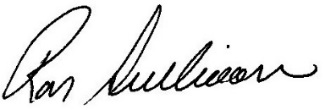 Ron Sullivan